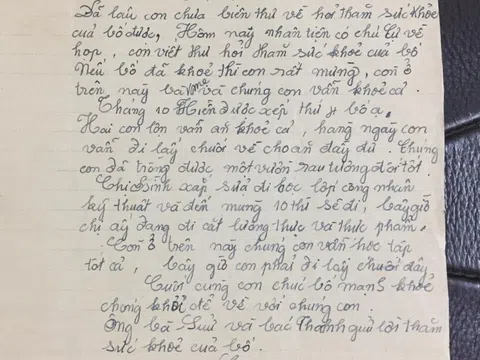 Đã lâu con chưa biên thư về hỏi thăm sức khoẻ
của bố được, Hôm nay nhân tiện có chú Tư về
họp, con viết thư hỏi thăm sức khoẻ của bố
Nếu bố đã khoẻ thì con rất mừng, còn ở
trên này bà me và chúng con vẫn khoẻ cả.
Tháng 10 Hiền được xếp thứ 4 bố ạ,
Hai con lợn vẫn ăn khoẻ cả, hàng ngày con
vẫn đi lấy chuối về cho ăn đầy đủ. Chúng
con đã trồng được một vườn rau tương đối tốt.
Chị Bình sắp sửa đi học lớp công nhân
kỹ thuật và đến mùng 10 thì sẽ đi, bây giờ
chị ấy đang đi cắt lương thực và thực phẩm.
Còn ở trên này chúng con vẫn học tập
tốt cả, bây giờ con phải đi lấy chuối đây
Cuối cùng con chúc bố mạnh khoẻ
chóng khỏi để về với chúng con.
Ông bà Sửu và bác Thanh gửi lời thăm
sức khoẻ của bố.